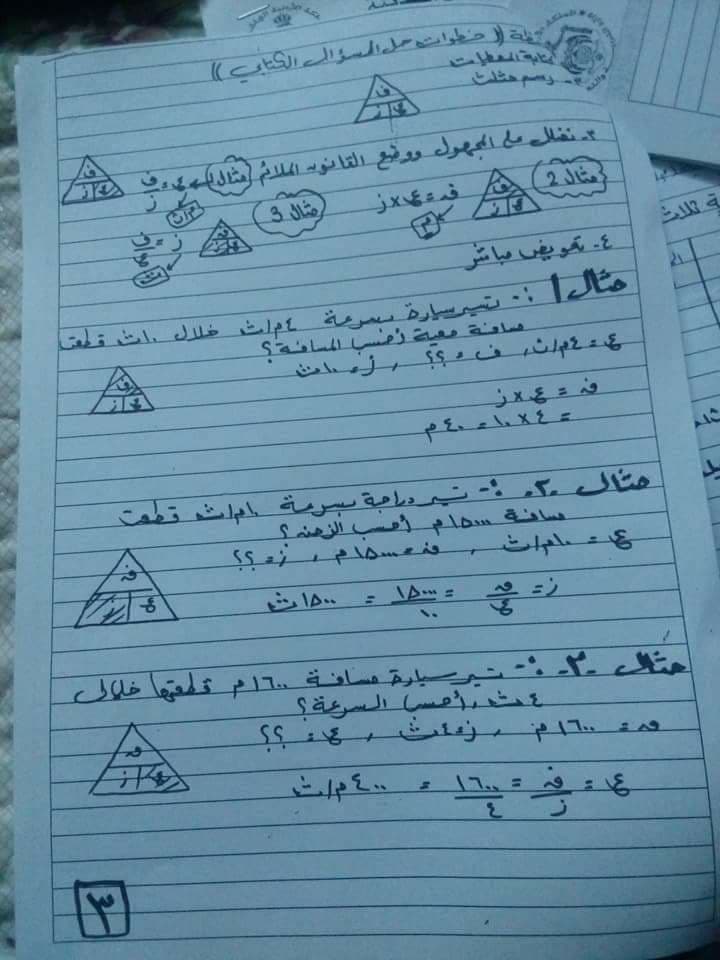 خطوات حل السؤال الكتابي ))
كتابة المعطيات
رسم مثلث
ف
ع ز
٣- نظلل على المجهول ووضع القانون الملائم مثال 1 ع = ف/ز م/ث
ف
ع ز
مثال 2 ف = ع × ز م
ف
ع ز
مثال 3 ز = ف/ع ث
ف
ع ز
٤- تعويض مباشر
مثال 1 :- تسير سيارة بسرعة ٤ م/ث خلال ١٠ ث قطعت
مسافة معينة أحسب المسافة؟
ع = ٤ م/ث، ف = ؟؟ ، ز = ١٠ ث
ف
ع ز
ف = ع × ز
= ٤ × ١٠ = ٤٠ م
مثال -٢- :- تسير دراجة بسرعة ١٠ م/ث قطعت
مسافة ١٥٠٠٠ م أحسب الزمن؟
ع = ١٠ م/ث ، ف = ١٥٠٠٠ م ، ز = ؟؟
ف
ع
ز = ف/ع = ١٥٠٠٠/١٠ = ١٥٠٠ ث
مثال -٣- :- تسير سيارة مسافة ١٦٠٠ م قطعتها خلال
٤ ث، أحسب السرعة؟
ف = ١٦٠٠ م ، ز = ٤ ث ، ع = ؟؟
ف
ع ز
ع = ف/ز = ١٦٠٠/٤ = ٤٠٠ م/ث
٣